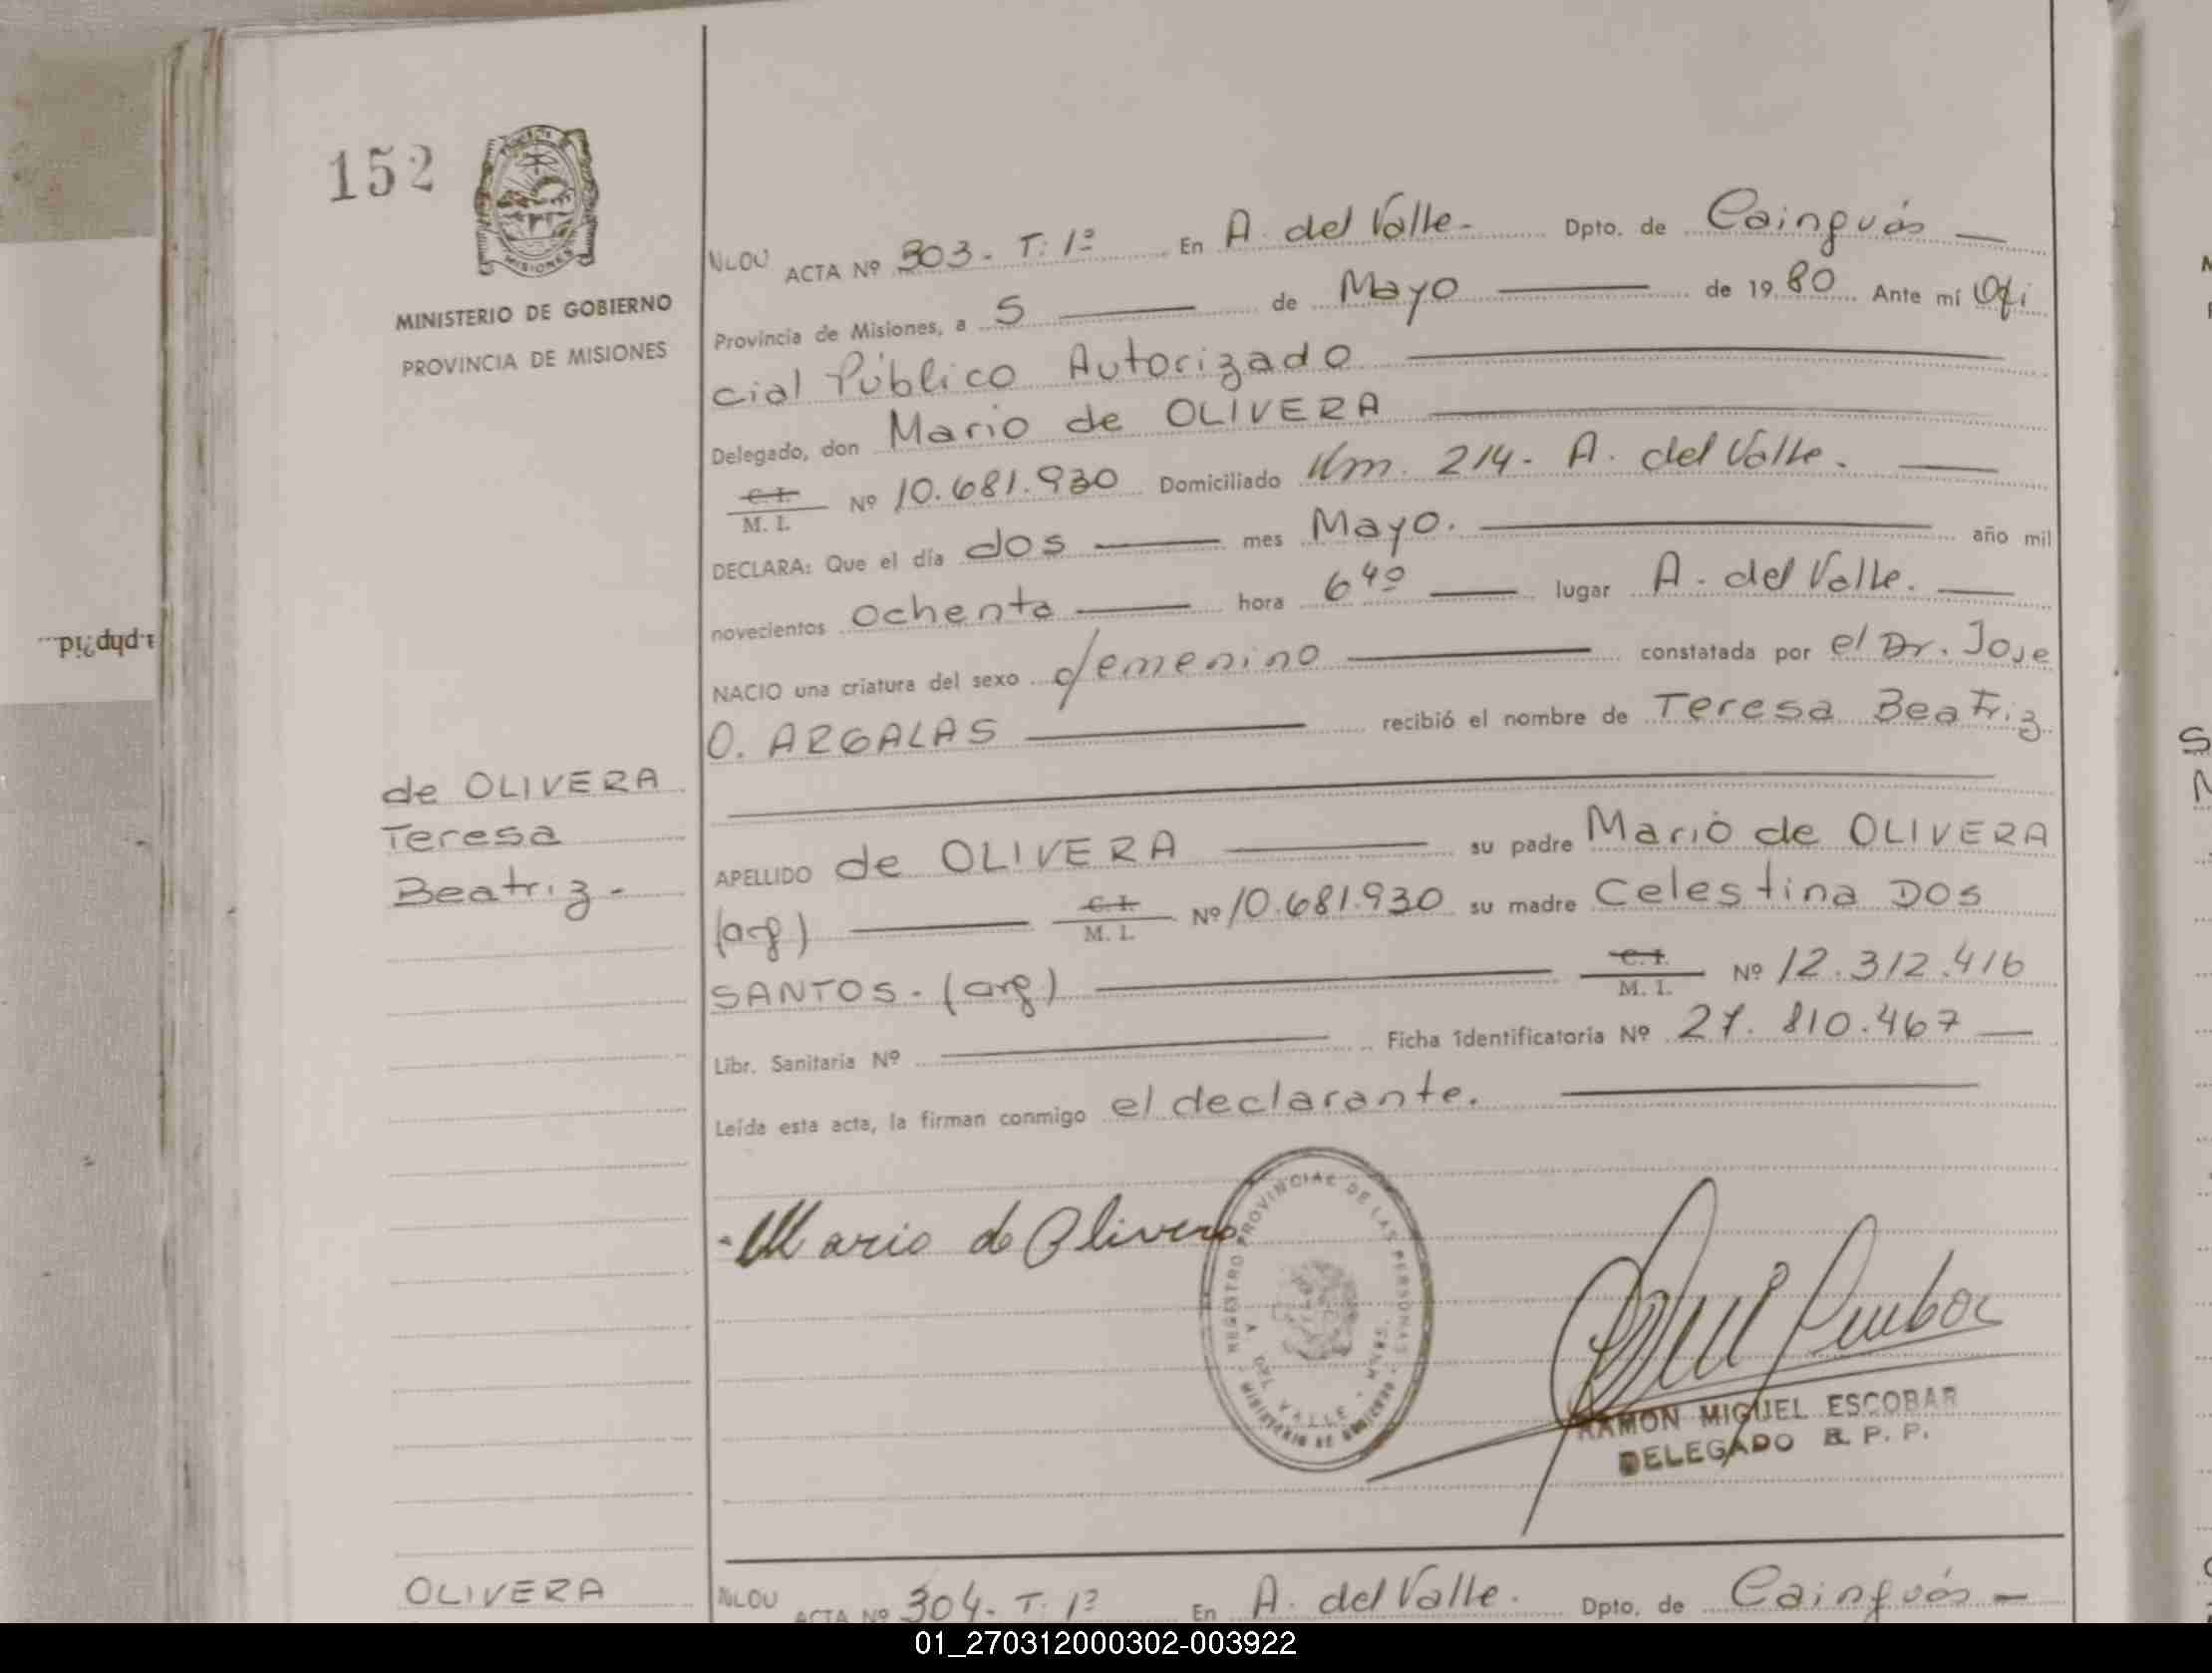 152
MISIONES
MINISTERIO DE GOBIERNO
PROVINCIA DE MISIONES
NLOU ACTA Nº 303- T: 1º En A. del Valle- Dpto. de Cainguás —
Provincia de Misiones, a 5 — de Mayo — de 1980 Ante mí Ofi
cial Público Autorizado —
Delegado, don Mario de OLIVERA —
C. I. M. I. Nº 10.681.930 Domiciliado Km. 214- A. del Valle. —
DECLARA: Que el día dos — mes Mayo. — año mil
novecientos ochenta — hora 6 40 — lugar A. del Valle. —
NACIO una criatura del sexo femenino — constatada por el Dr. Jose
O. ARGALAS — recibió el nombre de Teresa Beatriz
de OLIVERA
Teresa
Beatriz-
APELLIDO de OLIVERA — su padre Mario de OLIVERA
(arg) — C. I. M. I. Nº 10.681.930 su madre Celestina DOS
SANTOS- (arg) — C. I. M. I. Nº 12.312.416
Libr. Sanitaria Nº — Ficha identificatoria Nº 27.810.467 —
Leída esta acta, la firman conmigo el declarante. —
Mario de Olivera
REGISTRO PROVINCIAL DE LAS PERSONAS
A. DEL VALLE - MNES.
MINISTERIO DE GOBIERNO
RAMON MIGUEL ESCOBAR
DELEGADO R. P. P.
OLIVERA
NLOU ACTA Nº 304- T. 1º En A. del Valle. Dpto. de Cainguás —
a.php?id...
01_270312000302-003922